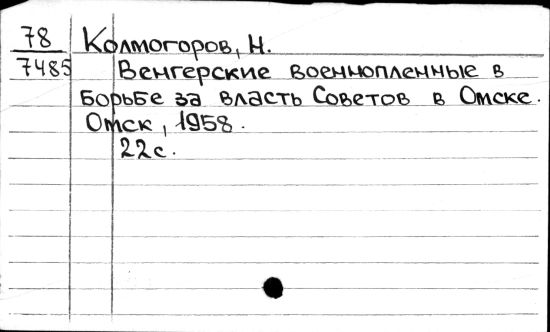 78 Колмогоров, Н.
7485 Венгерские военнопленные в
борьбе за власть Советов в Омске.
Омск, 1958.
22с.